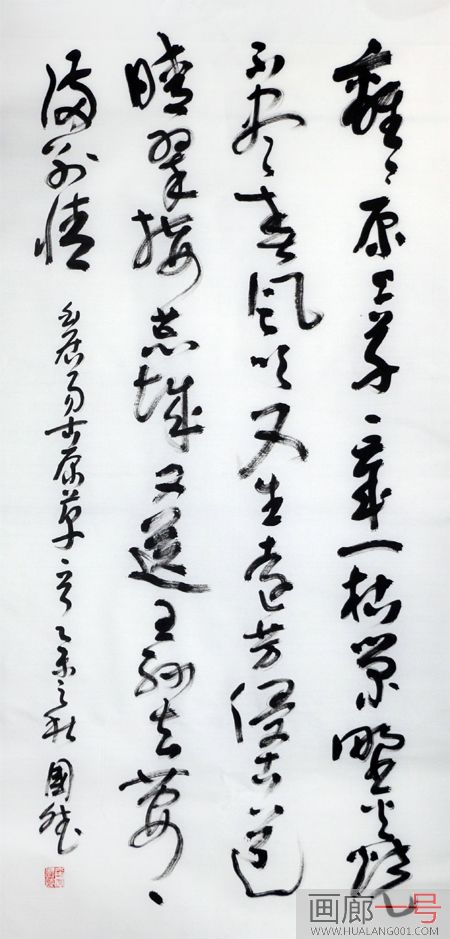 離〻原上草一歲一枯榮野火燒
不盡春風吹又生遠芳侵古道
晴翠接荒城又送王孫去萋〻
滿別情
居易古原草 乙未之秋 國
画廊一号
WWW.HUALANG001.COM